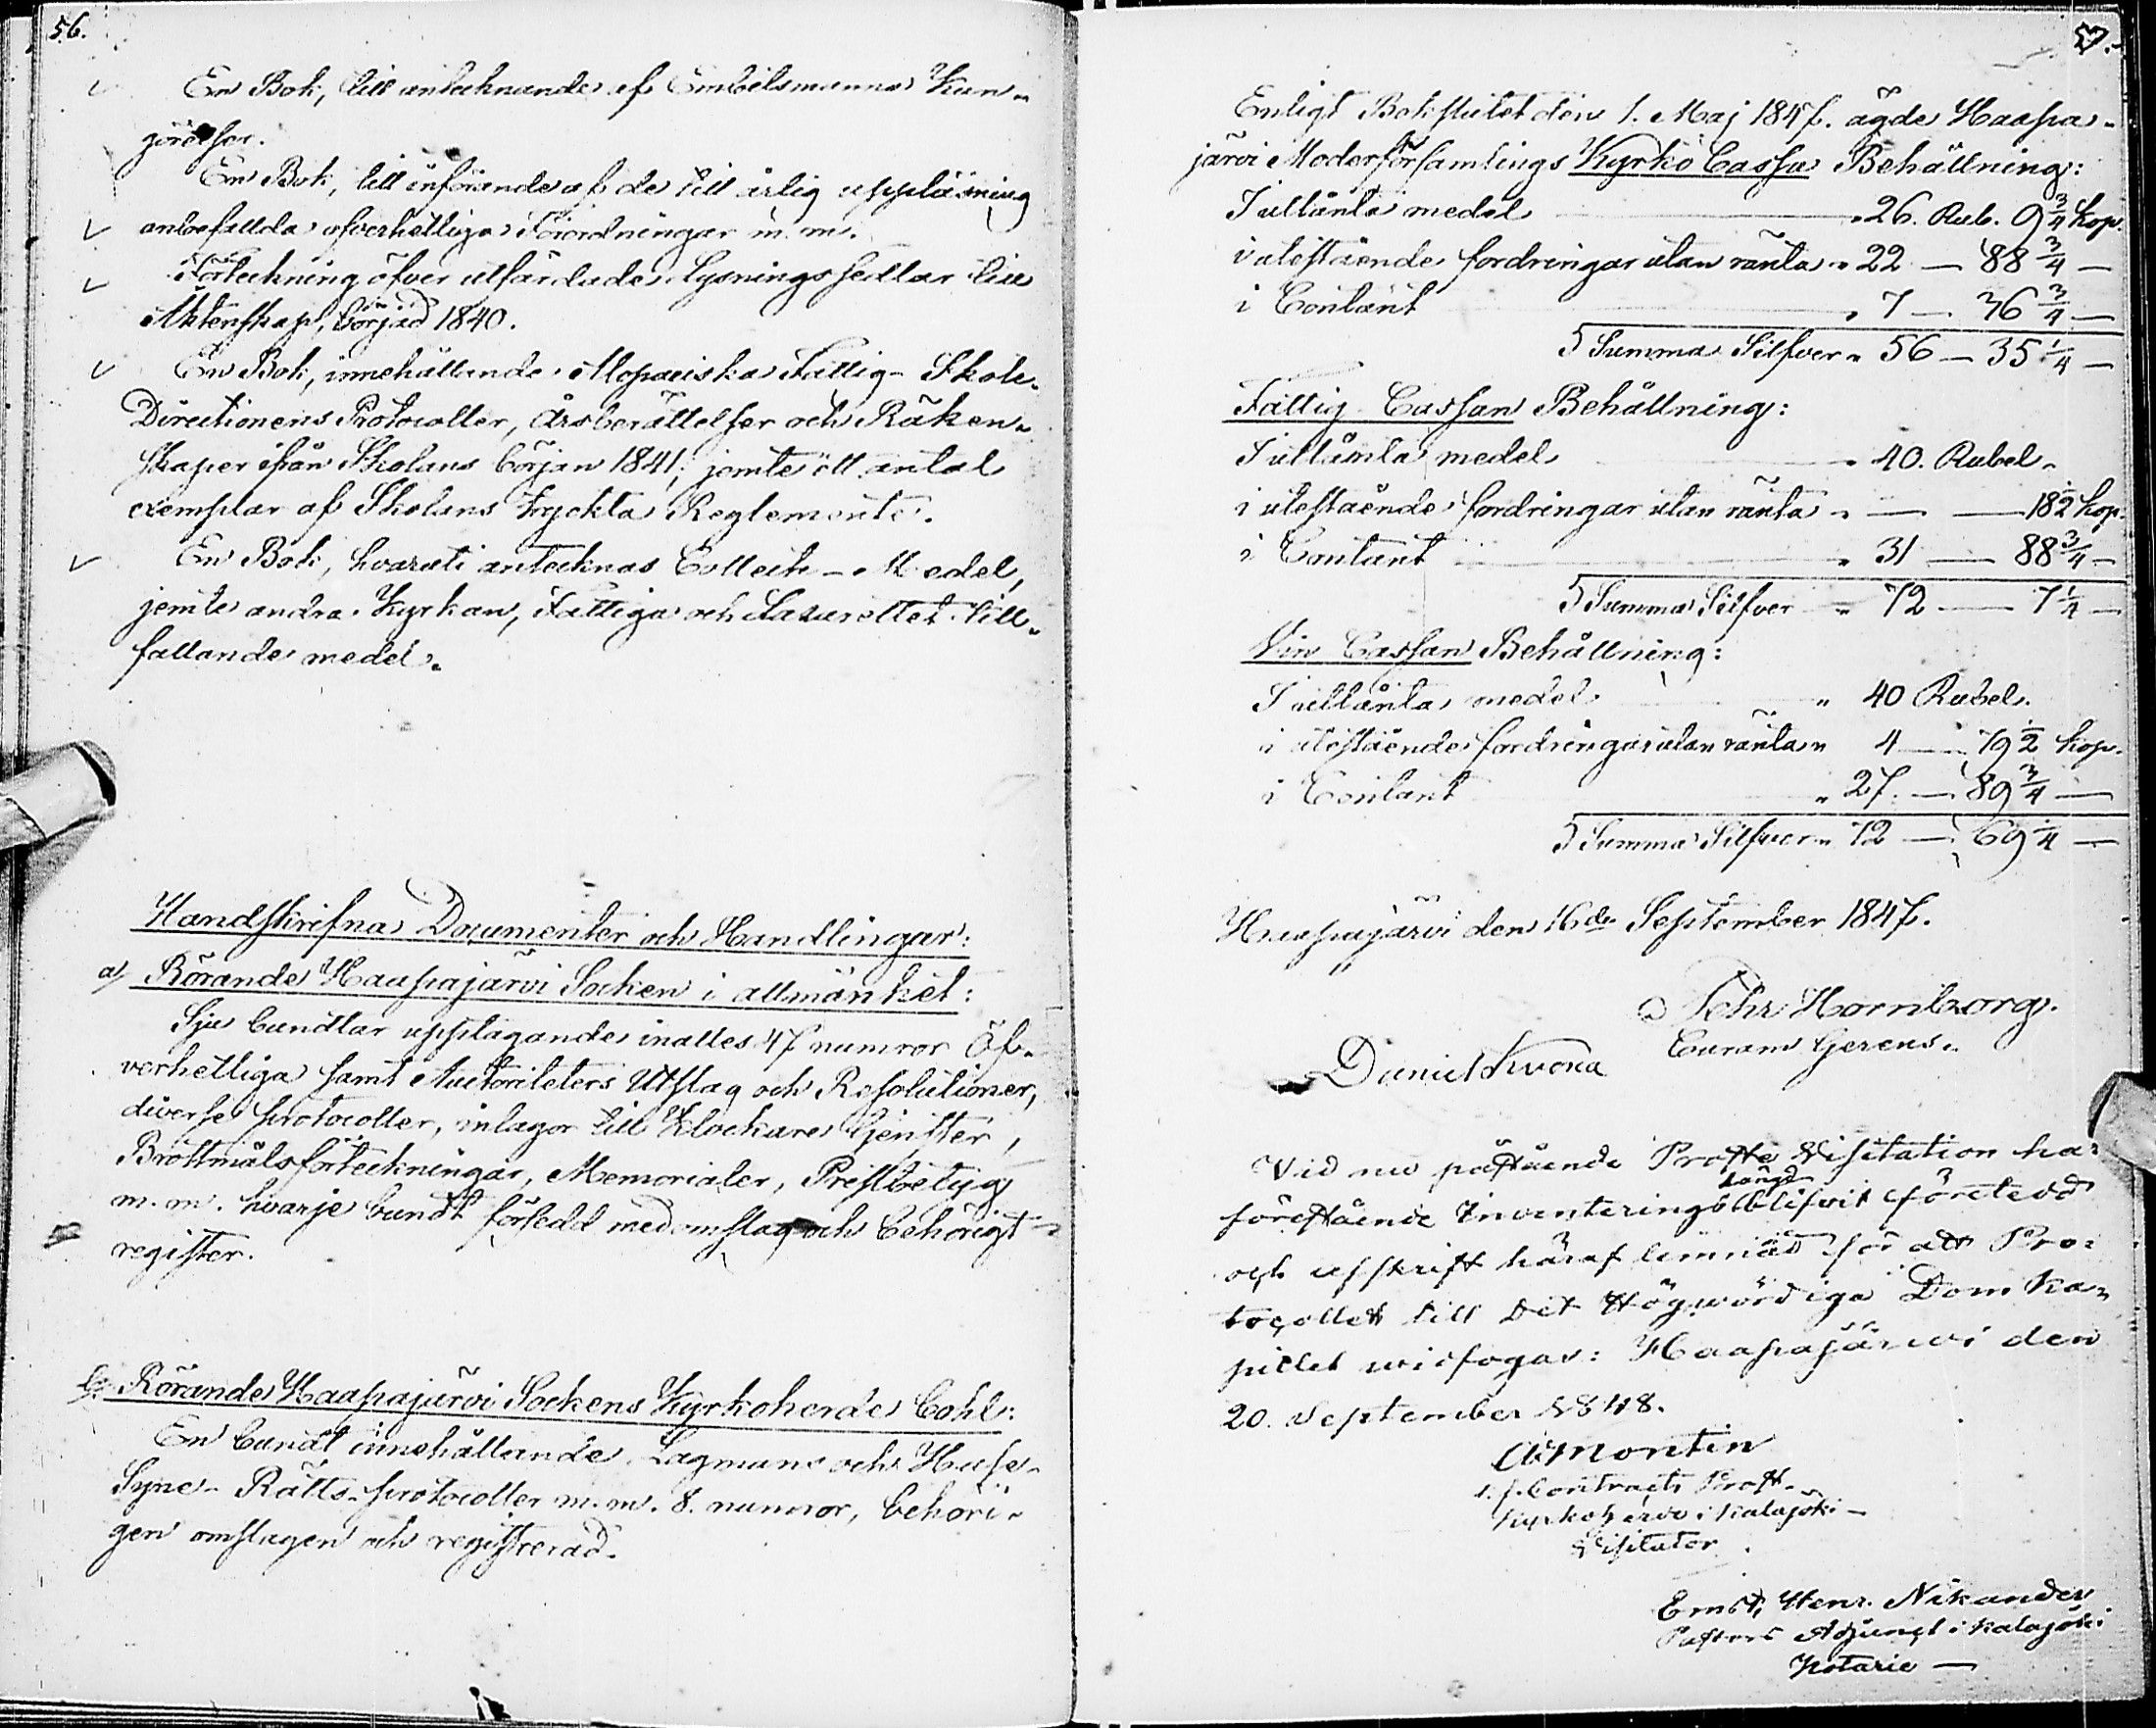 56.
En Bok, till antecknande af Embetsmanna Kun-
görelser.
En Bok, till införande af de till årlig uppläsning
anbefallda öfverhetliga Förordningar m. m.
Förteckning öfver utfärdade Lysningssedlar till
Äktenskap, börjad 1840.
En Bok, innehållande Mopaeiska Fattig-Skole-
Directionens Protocoller, Årsberättelser och Räken-
skaper ifrån Skolans början 1841; jemte ett antal
exemplar af Skolans tryckta Reglemente.
En Bok, hvaruti antecknas Collect-Medel,
jemte andra Kyrkan, Fattiga och Lazarettet till-
fallande medel.
Handskrifna Documenter och Handlingar:
a) Rörande Haapajärvi Socken i allmänhet:
Sju bundtar upptagande inalles 47 numror Öf-
verhetliga samt Autoriteters Utslag och Resolutioner,
diverse protocoller, inlagor till Klockare tjenster,
Brottmålsförteckningar, Memorialer, Prestbetyg
m. m. hvarje bundt försedd med omslag och behörigt
register.
b) Rörande Haapajärvi Sockens Kyrkoherde Bohl:
En bundt innehållande Lagmans och Huse-
Syne-Rätts-protocoller m. m. 8. numror, behöri-
gen omslagen och registrerad.
57.
Enligt Bokslutet den 1. Maj 1847. ägde Haapa-
järvi Moderförsamlings Kyrko Cassa Behållning:
I utlånta medel " 26. Rub. 9 3/4 kop.
i utestående fordringar utan ränta " 22 — 88 3/4 —
i Contant " 7 — 36 3/4 —
Summa Silfver " 56 — 35 1/4 —
Fattig Cassan Behållning:
I utlånta medel " 40. Rubel.
i utestående fordringar utan ränta " — — 18 1/2 kop.
i Contant " 31 — 88 3/4 —
Summa Silfver " 72 — 7 1/4 —
Vin Cassan Behållning:
I utlånta medel " 40 Rubel.
i utestående fordringar utan ränta " 4 — 79 1/2 kop.
i Contant " 27. — 89 3/4 —
Summa Silfver " 72 — 69 1/4 —
Haapajärvi den 16de September 1847.
Pehr Hornborg.
Curam Gerens.
Daniel
Vid nu påstående Prosts Visitation har
längd
förestående Inventerings blifvit företedd
och afskrift häraf lemnad för att Pro-
tocollet till Det Högwördiga Dom Ka-
pitlet widfogas: Haapajärwi den
20. September 1848.
Montin
Contracts Prost.
Kyrkoherde i Kalajoki —
Visitator.
Ernst Henr. Nikander
Pastors Adjunct i Kalajoki
Notarie —